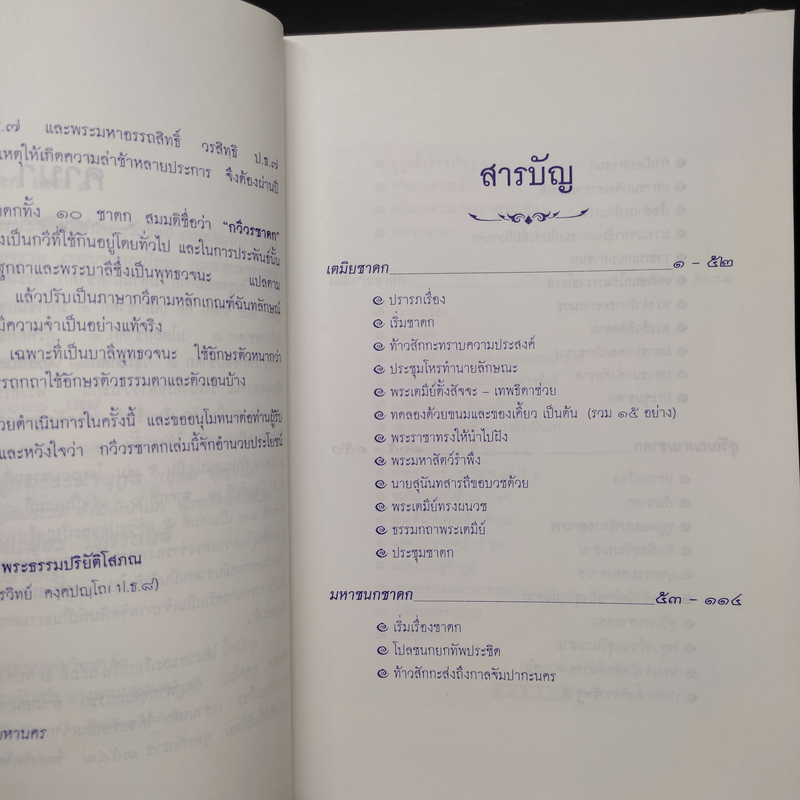 .ธ.๗ และพระมหาอรรถสิทธิ์ วรสิทฺธิ ป.ธ.๗
เหตุให้เกิดความล่าช้าหลายประการ จึงต้องผ่านปี
าดกทั้ง ๑๐ ชาดก สมมติชื่อว่า “กวีวรชาดก”
งเป็นกวีที่ใช้กันอยู่โดยทั่วไป และในการประพันธ์นั้น
ฐกถาและพระบาลีซึ่งเป็นพุทธวจนะ แปลตาม
แล้วปรับเป็นภาษากวีตามหลักเกณฑ์ฉันทลักษณ์
มีความจำเป็นอย่างแท้จริง
เฉพาะที่เป็นบาลีพุทธวจนะ ใช้อักษรตัวหนากว่า
รถกถาใช้อักษรตัวธรรมดาและตัวเอนบ้าง
วยดำเนินการในครั้งนี้ และขออนุโมทนาต่อท่านผู้รับ
และหวังใจว่า กวีวรชาดกเล่มนี้จักอำนวยประโยชน์
พระธรรมปริยัติโสภณ
รวิทย์ คงฺคปญฺโญ ป.ธ.๘)
มหานคร
สารบัญ
เตมิยชาดก ๑ - ๕๒
ปรารภเรื่อง
เริ่มชาดก
ท้าวสักกะทราบความประสงค์
ประชุมโหรทำนายลักษณะ
พระเตมีย์ตั้งสัจจะ - เทพธิดาช่วย
ทดลองด้วยขนมและของเคี้ยว เป็นต้น (รวม ๑๕ อย่าง)
พระราชาทรงให้นำไปฝัง
พระมหาสัตว์รำพึง
นายสุนันทสารถีขอบวชด้วย
พระเตมีย์ทรงผนวช
ธรรมกถาพระเตมีย์
ประชุมชาดก
มหาชนกชาดก ๕๓ - ๑๑๔
เริ่มเรื่องชาดก
โปลชนกยกทัพประชิด
ท้าวสักกะส่งถึงกาลจัมปากะนคร